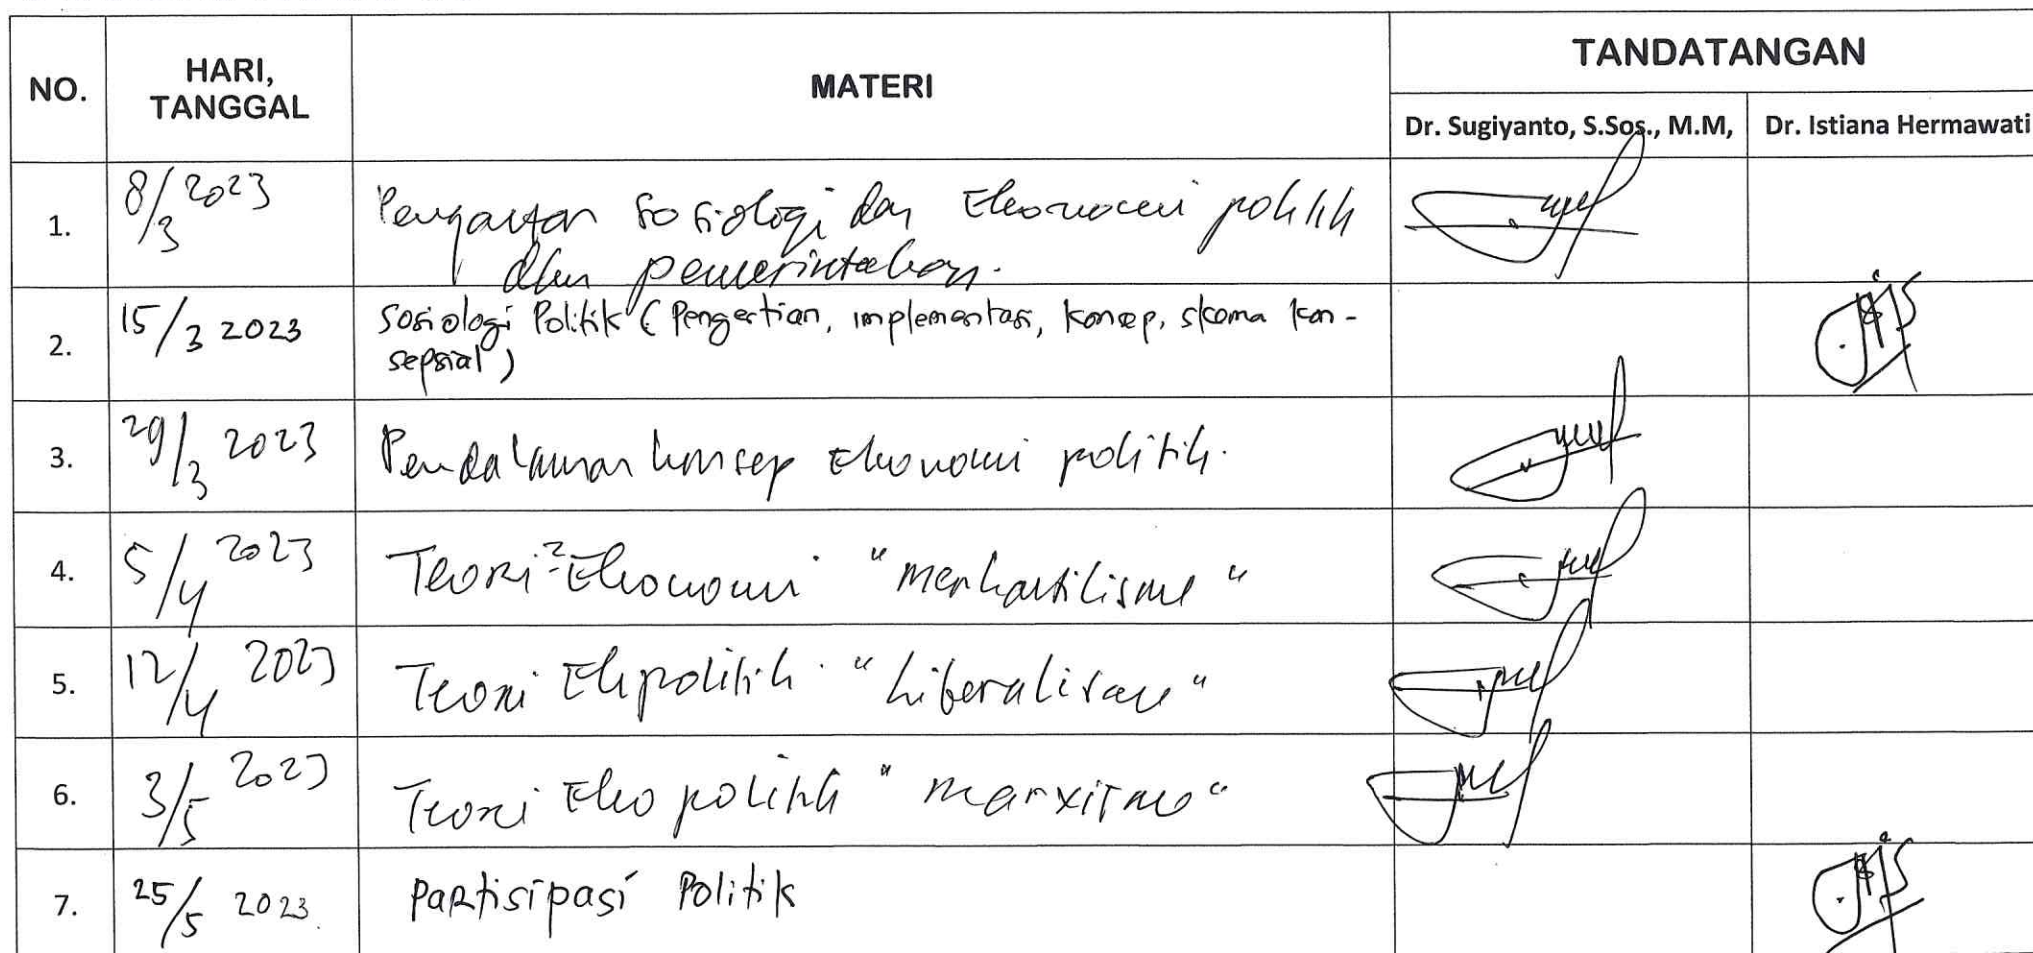 NO. HARI, TANGGAL MATERI TANDATANGAN
Dr. Sugiyanto, S.Sos., M.M, Dr. Istiana Hermawati
1. 8/3 2023 Pengantar Sosiologi dan Ekonomi politik
dan pemerintahan.
2. 15/3 2023 Sosiologi Politik (Pengertian, implementasi, konsep, skema kon-
sepsial)
3. 29/3 2023 Pendalaman konsep Ekonomi politik.
4. 5/4 2023 Teori² Ekonomi "merkantilisme"
5. 12/4 2023 Teori Ekpolitik "Liberalisme"
6. 3/5 2023 Teori Eko politik "marxisme"
7. 25/5 2023. Partisipasi Politik